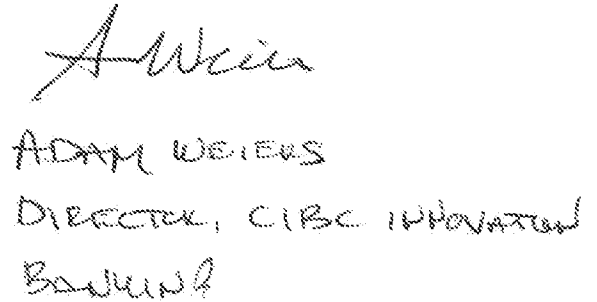 A Weiers
ADAM WEIERS
DIRECTOR, CIBC INNOVATION
BANKING